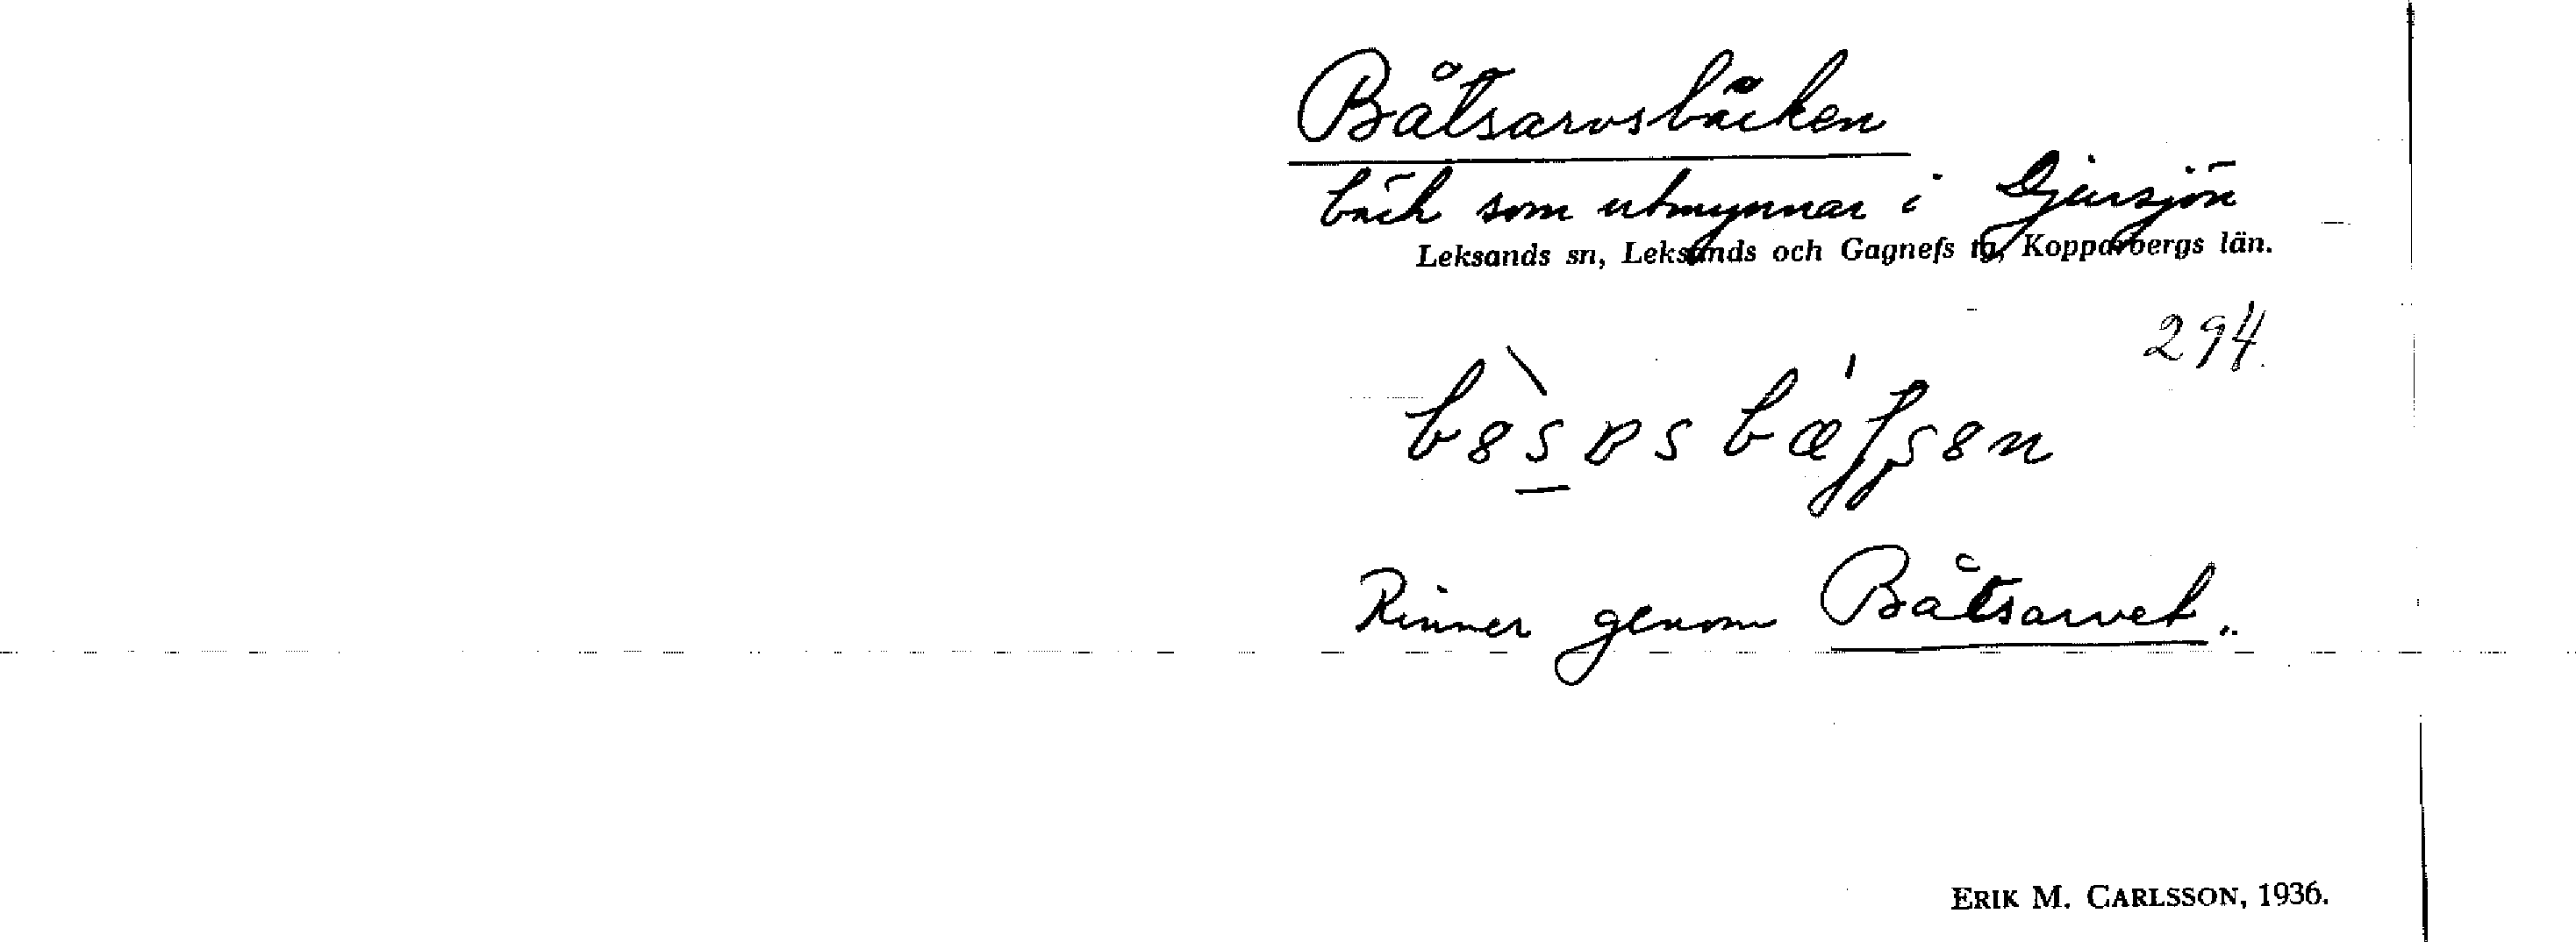 Båtsarvsbäcken
bäck som utmynnar i Djursjön
Leksands sn, Leksands och Gagnefs tg, Kopparbergs län.
294.
Rinner genom Båtsarvet.
ERIK M. CARLSSON, 1936.